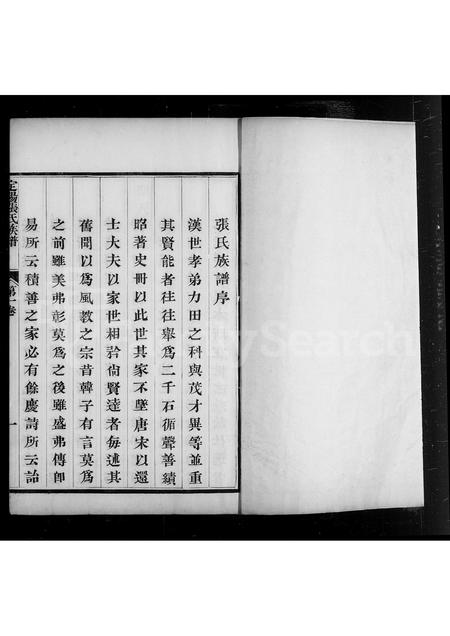 張氏族譜序
漢世孝弟力田之科與茂才異等並重
其賢能者往往舉為二千石循聲善績
昭著史冊以此世其家不墜唐宋以還
士大夫以家世相矜尙賢達者每述其
舊聞以為風教之宗昔韓子有言莫為
之前雖美弗彰莫為之後雖盛弗傳卽
易所云積善之家必有餘慶詩所云詒
張氏族譜
第一卷
一